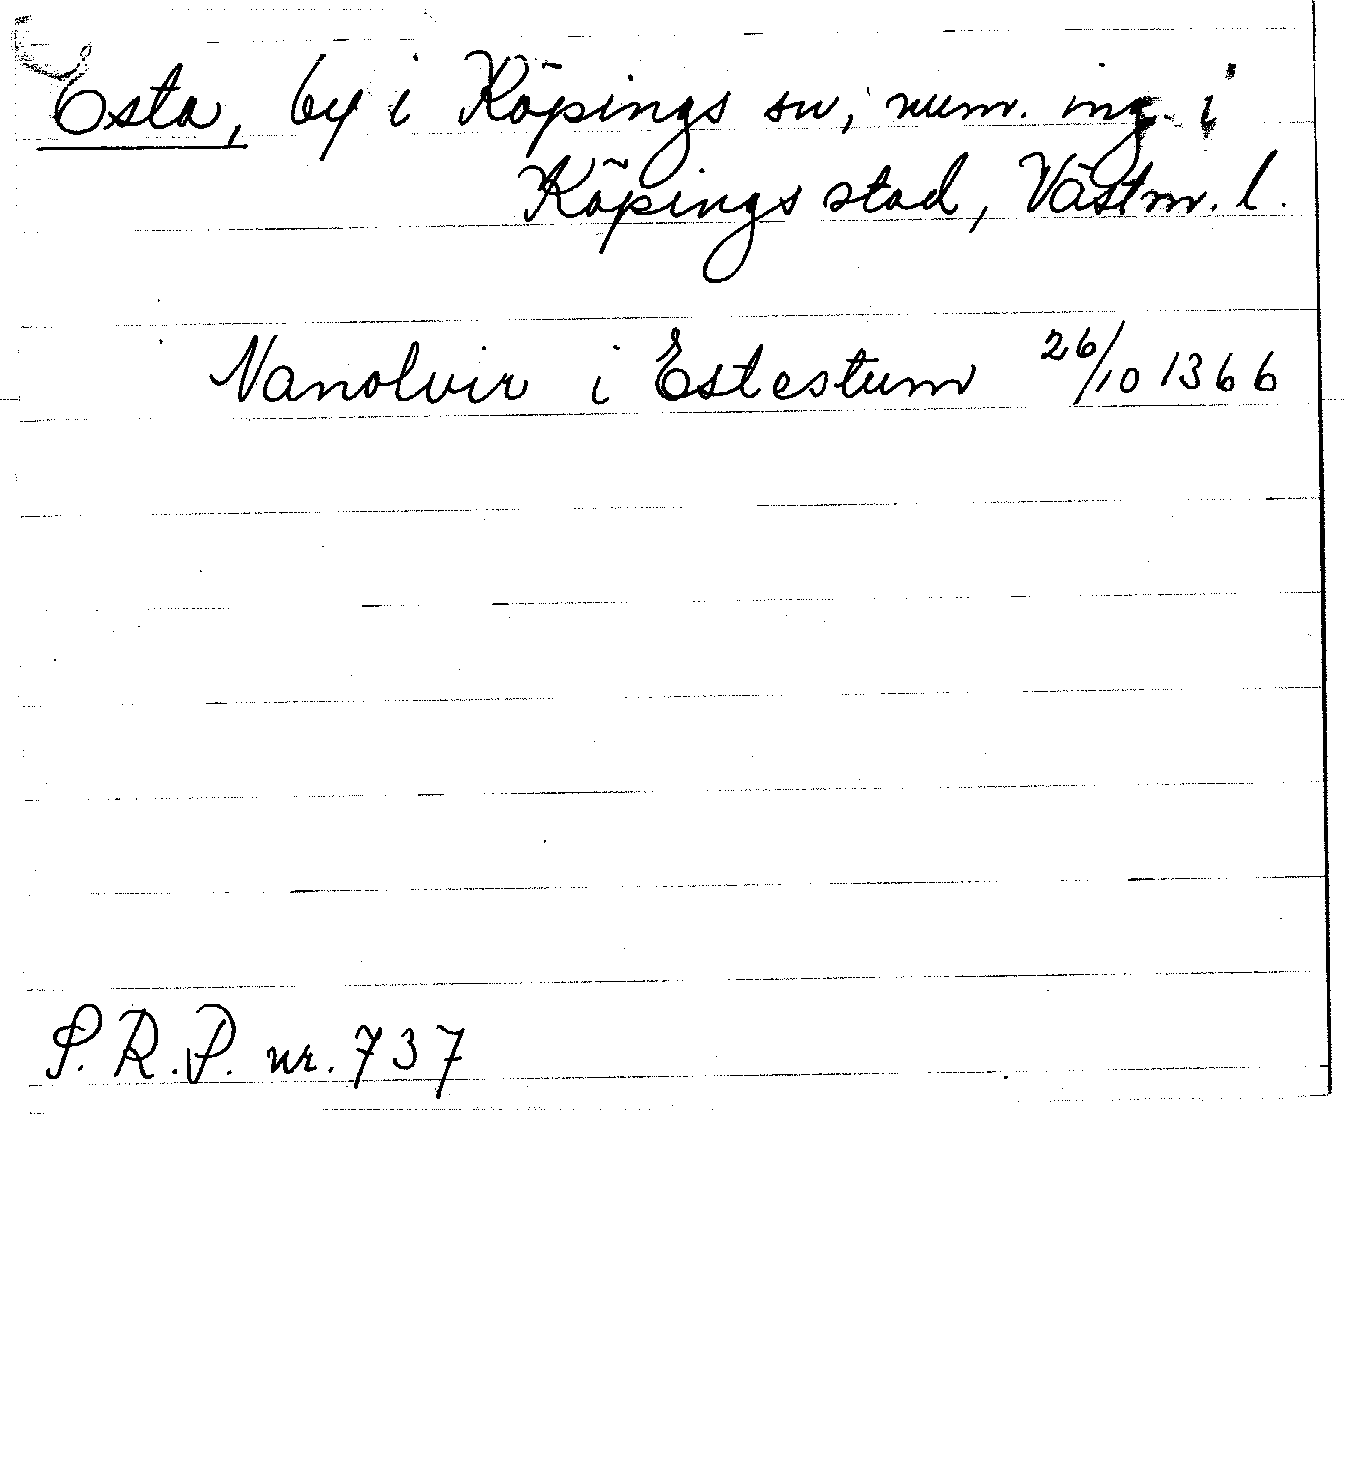 Esta, by i Köpings sn, num. ing. i
Köpings stad, Västm. l.
Nanolvir i Estestum 26/10 1366
S.R.P. nr. 737